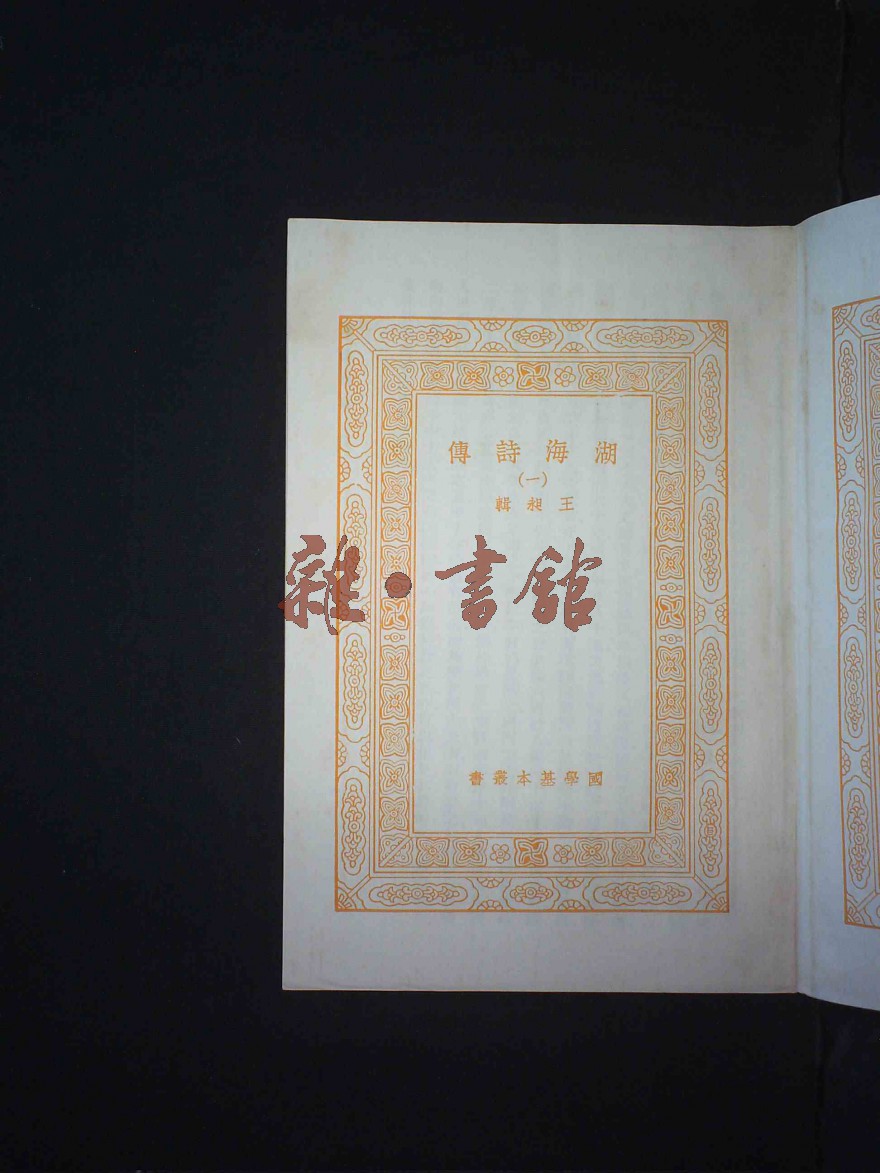 湖海詩傳
(一)
王昶輯
雜·書館
國學基本叢書